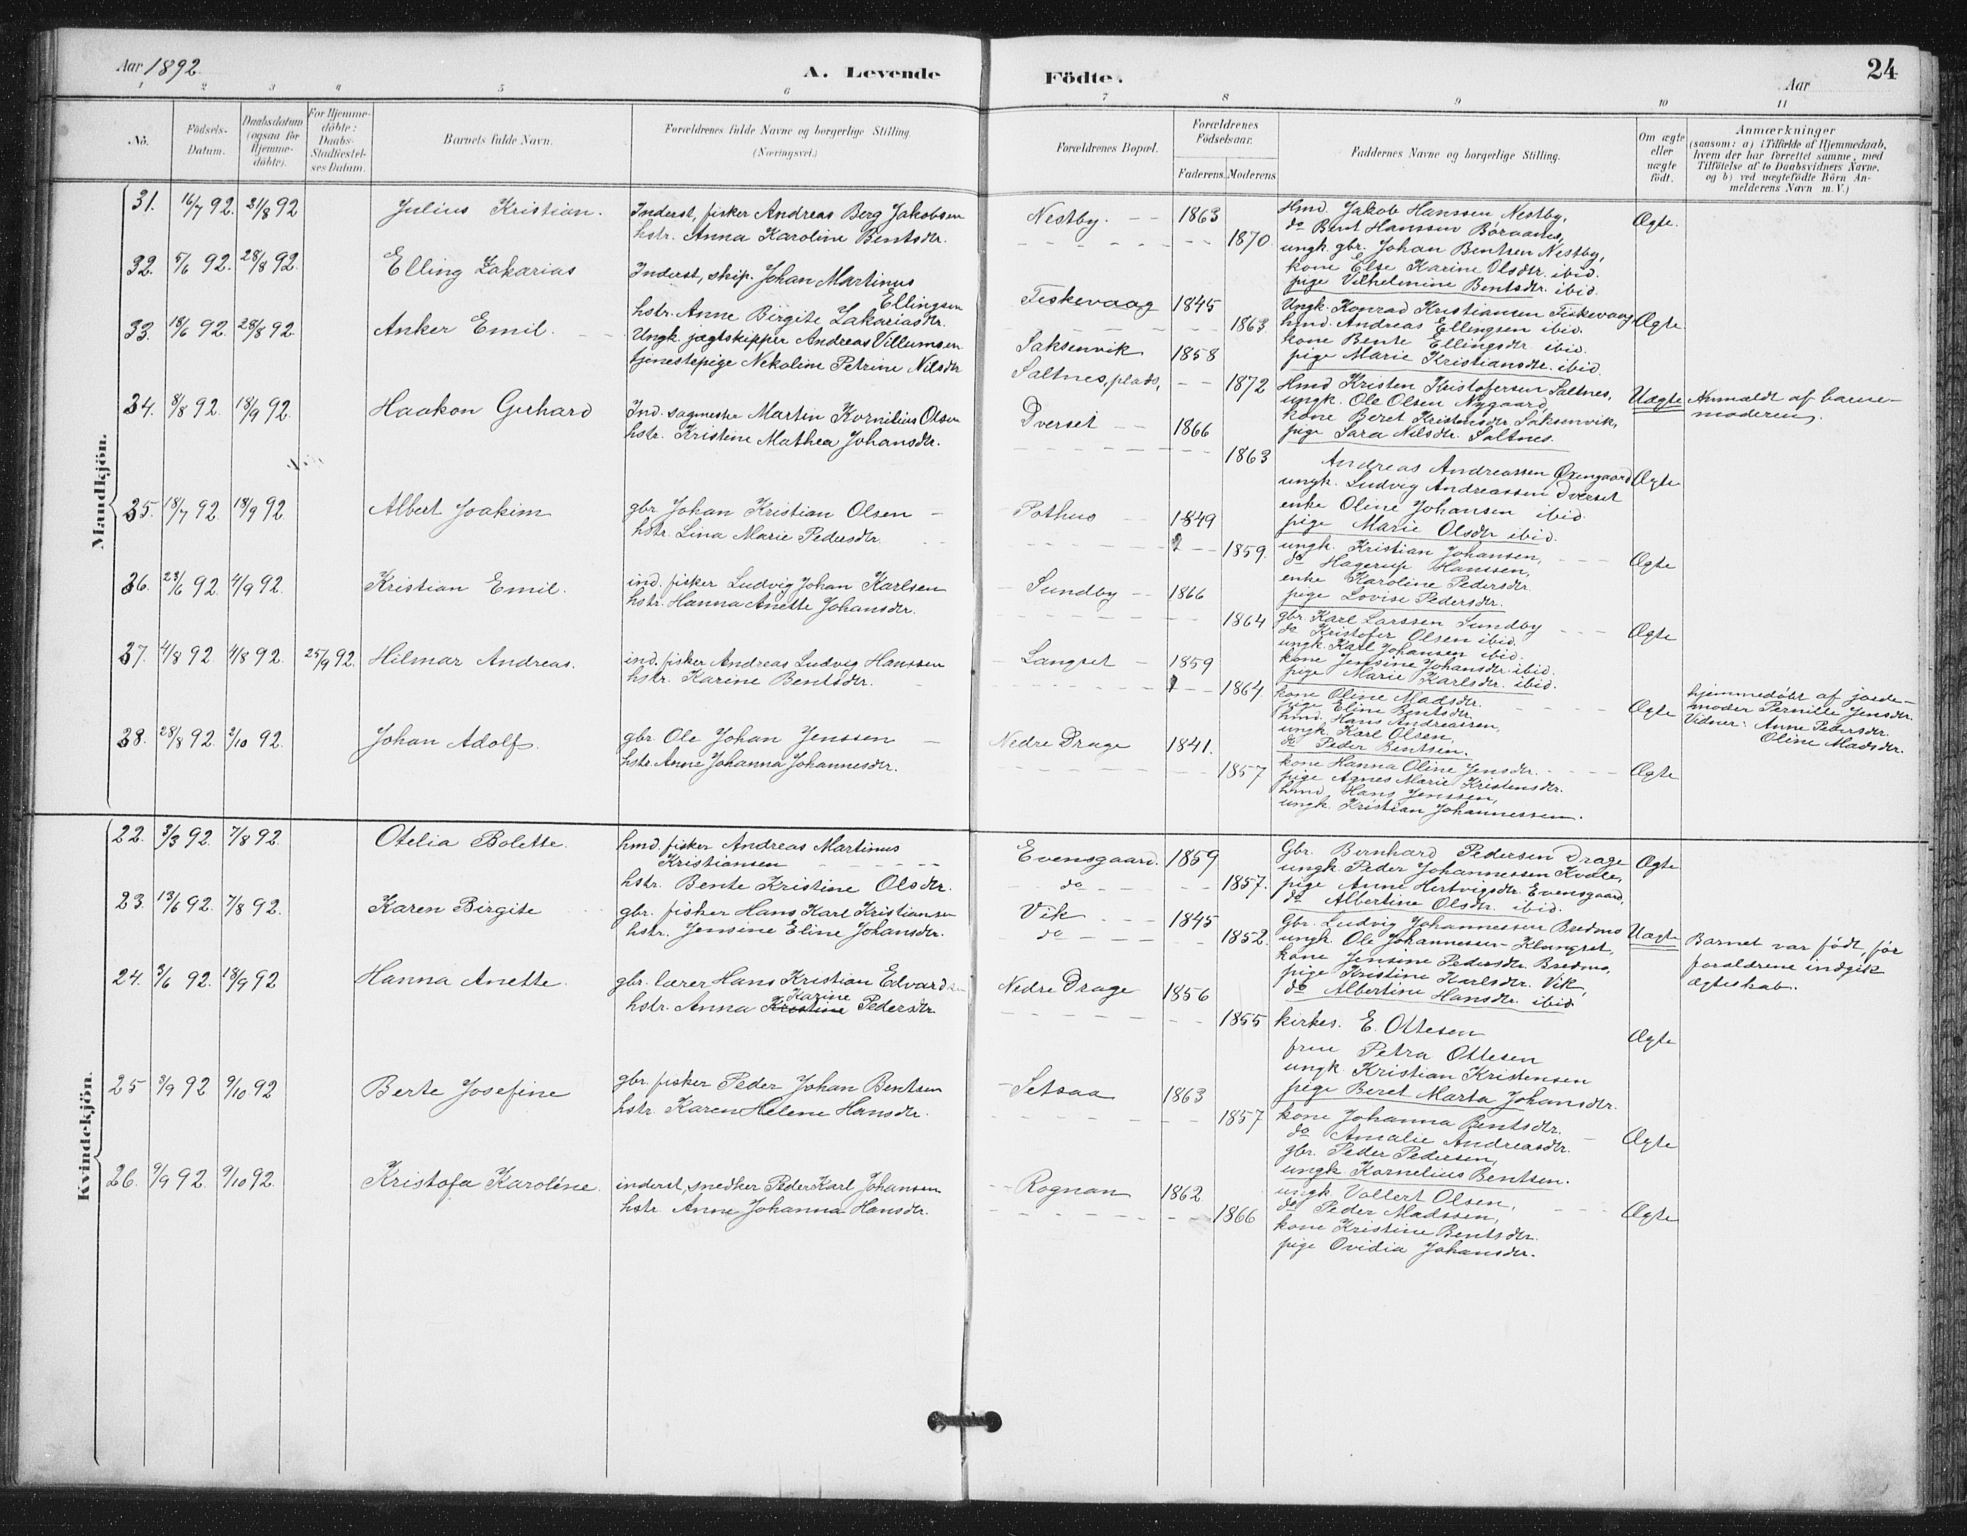 Aar 1892.
A. Levende Födte.
Aar
24
1 2 3 4 5 6 7 8 9 10 11
No.
Födsels-Datum.
Daabsdatum (ogsaa for Hjemme-döbte).
For Hjemme-döbte: Daabs-Stadfæstel-ses Datum.
Barnets fulde Navn.
Forældrenes fulde Navne og borgerlige Stilling (Næringsvei.)
Forældrenes Bopæl.
Forældrenes Födselsaar.
Faderens. Moderens.
Faddernes Navne og borgerlige Stilling.
Om ægte eller uægte födt.
Anmærkninger (saasom: a) i Tilfælde af Hjemmedaab, hvem der har forrettet samme, med Tilföielse af to Daabsvidners Navne, og b) ved uægtefödte Börn An-melderens Navn m. V.)
Mandkjön.
31. 16/7 92. 21/8 92 Julius Kristian. Inderst, fisker Andreas Berg Jakobsen
hstr. Anna Karoline Bentsdtr.
Nestby. 1863 1870
Hmd. Jakob Hanssen Nestby,
do Bernt Hanssen
ungk. gbr. Johan Bentsen Nestby,
kone Else Karine Olsdtr. ibid.
pige Vilhelmine Bentsdtr. ibid.
Ægte.
32. 5/6 92. 28/8 92. Elling Zakarias Inderst, skip. Johan Martinus
Ellingsen
hstr. Anne Birgite Zakariasdtr.
Fiskevaag 1845 1863
Ungk. Konrad Kristiansen Fiskevaag
hmd. Andreas Ellingsen ibid.
kone Bente Ellingsdtr ibid.
pige Marie Kristiansdtr. ibid.
Ægte
33. 18/6 92. 28/8 92. Anker Emil. Ungk. jægtskipper Andreas Villumsen
tjenestepige Nekoline Petrine Nilsdtr
Saksenvik 1858
Saltnes, plads, 1872
Hmd Kristen Kristofersen Saltnes,
ungk. Ole Olsen Nygaard,
kone Beret Kristensdtr Saksenvik,
pige Sara Nilsdtr. Saltnes.
Uægte Anmeldt af barne-
moderen.
34. 8/8 92. 18/9 92. Haakon Gerhard Ind. sagmester Martin Kornilius Olsen
hstr. Kristine Mathea Johansdtr.
Dverset 1866 1863
Andreas Andreassen Öxengaard
ungk. Ludvig Andreassen Dverset
enke Oline Johansen ibid.
pige Marie Olsdtr ibid.
Ægte
35. 18/7 92 18/9 92. Albert Joakim gbr Johan Kristian Olsen
hstr. Lina Marie Pedersdtr.
Pothus 1849 1859.
ungk. Kristian Johansen,
do Hagerup Hanssen,
enke Karoline Pedersdtr.
pige Lovise Pedersdtr.
Ægte
36. 23/6 92 4/9 92. Kristian Emil. ind. fisker Ludvig Johan Karlsen
hstr. Hanna Anette Johansdtr.
Sundby 1866 1864
gbr. Karl Larssen Sundby
do Kristofer Olsen ibid.
ungk. Karl Johansen ibid.
kone Jensine Johansdtr. ibid.
pige Marie Karlsdtr. ibid.
Ægte
37. 4/8 92 4/8 92. 25/9 92. Hilmar Andreas. ind. fisker Andreas Ludvig Hanssen
hstr. Karine Bentsdtr.
Langset 1859 1864
kone Oline Madsdtr.
pige Eline Bentsdtr.
hmd. Hans Andreassen,
ungk. Karl Olsen,
do Peder Bentsen.
Ægte
hjemmedöbt af jorde-
moder Pernille Jensdtr.
Vidner: Anne Pedersdtr.
Oline Madsdtr.
38. 28/8 92 2/10 92. Johan Adolf. gbr Ole Johan Jenssen
hstr. Anne Johanna Johannesdtr.
Nedre Drage 1841. 1857
kone Hanna Oline Jensdtr.
pige Agnes Marie Kristensdtr.
hmd. Hans Jenssen,
ungk. Kristian Johannessen.
Ægte
Kvindekjön.
22. 3/3 92 7/8 92. Otelia Bolette. hmd. fisker Andreas Martinus
Kristiansen
hstr. Bente Kristine Olsdtr.
Evensgaard. 1859
do 1857.
Gbr. Bernhard Pedersen Drage
ungk. Peder Johannessen Kvæle,
pige Anne Hertvigsdtr. Evensgaard,
do Albertine Olsdtr. ibid.
Ægte
23. 13/6 92. 7/8 92. Karen Birgite gbr. fisker Hans Karl Kristiansen
hstr. Jensine Eline Johansdtr.
Vik 1845
do 1852.
Gbr. Ludvig Johannessen Bredmo
ungk. Ole Johannessen Klungset,
kone Jensine Pedersdtr. Bredmo,
pige Kristine Karlsdtr. Vik,
do Albertine Hansdtr. ibid
Uægte Barnet var födt, för
foreldrene indgik
ægteskab.
24. 3/6 92. 18/9 92 Hanna Anette. gbr. lærer Hans Kristian Edvardsen
Karine
hstr. Anna Kristine Pedersdtr.
Nedre Drage 1856 1855
kirkes. E. Ottesen
frue Petra Ottesen
ungk. Kristian Kristensen
pige Beret Marta Johansdtr.
Ægte
25 3/9 92 9/10 92 Berte Josefine gbr. fisker Peder Johan Bentsen
hstr. Karen Helene Hansdtr.
Setsaa 1863 1857
kone Johanna Bentsdtr.
do Amalie Andreasdtr.
gbr. Peder Pedersen,
ungk. Kornelius Bentsen.
Ægte
26. 9/9 92 9/10 92. Kristofa Karoline. inderst, snedker Peder Karl Johansen
hstr Anne Johanna Hansdtr.
Rognan 1862 1866
ungk. Vollert Olsen,
do Peder Madssen,
kone Kristine Bentsdtr.
pige Ovidia Johansdtr.
Ægte